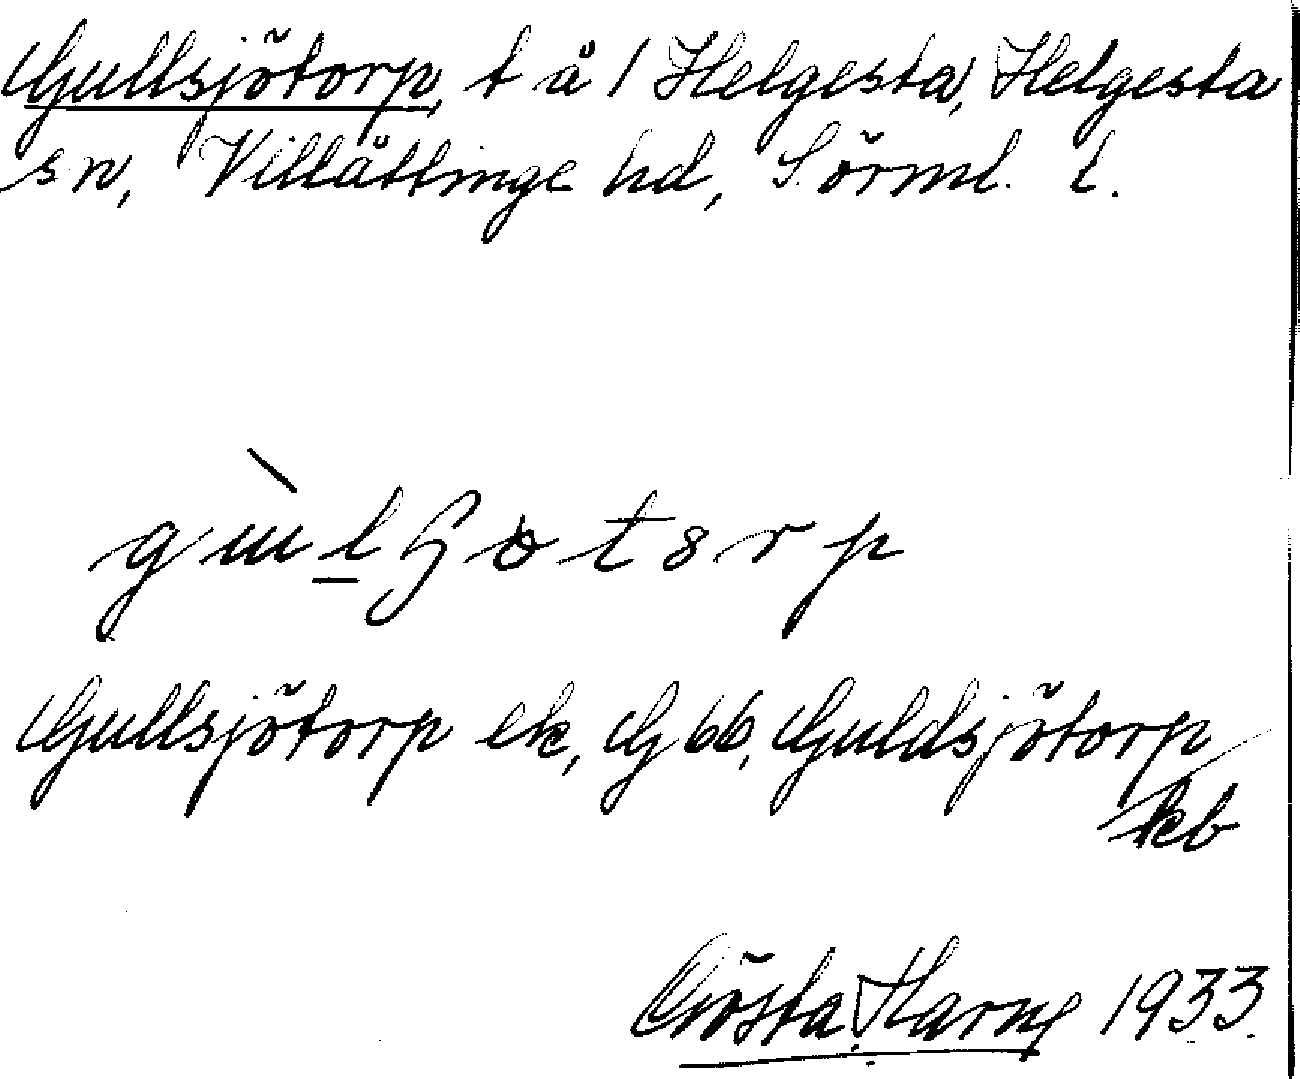 Gullsjötorp, t å 1 Helgesta, Helgesta
sn, Villåttinge hd, Sörml. l.
Gullsjötorp ek, G 66, Guldsjötorp
kb
Gösta Harng 1933.